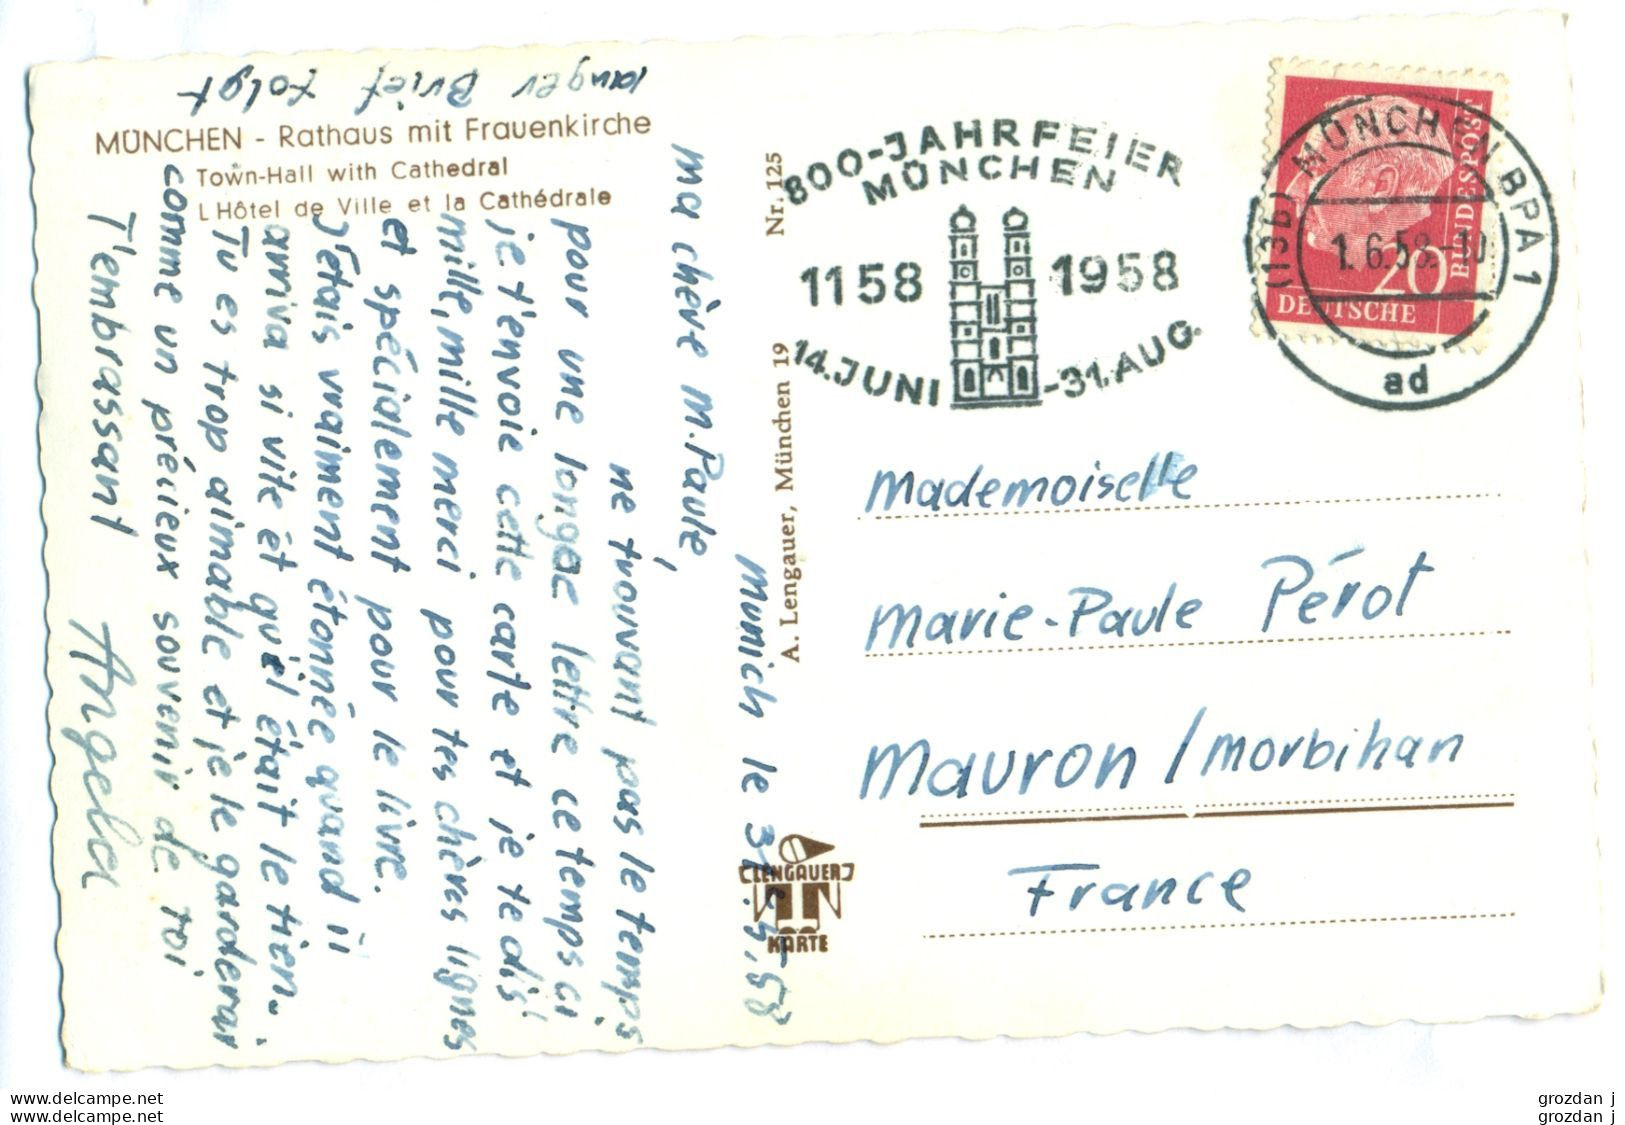 langer Brief folgt
MÜNCHEN - Rathaus mit Frauenkirche
Town-Hall with Cathedral
L'Hôtel de Ville et la Cathédrale
Munich le 31.5.58
Ma chère M. Paule,
ne trouvant pas le temps
pour une longue lettre ce temps ci
je t'envoie cette carte et je te dis
mille, mille merci pour tes chères lignes
et spécialement pour le livre.
J'étais vraiment étonnée quand il
arriva si vite et qu'il était le tien.
Tu es trop aimable et je le garderai
comme un précieux souvenir de toi
T'embrassant Angela
Nr. 125
A. Lengauer, München 19
LENGAUER
KARTE
800-JAHRFEIER
MÜNCHEN
1158 1958
14. JUNI -31. AUG.
(13b) MÜNCHEN BPA 1
1.6.58.-10
ad
20
DEUTSCHE
BUNDESPOST
Mademoiselle
Marie-Paule Pérot
Mauron / Morbihan
France
www.delcampe.net
www.delcampe.net
grozdan j
grozdan j